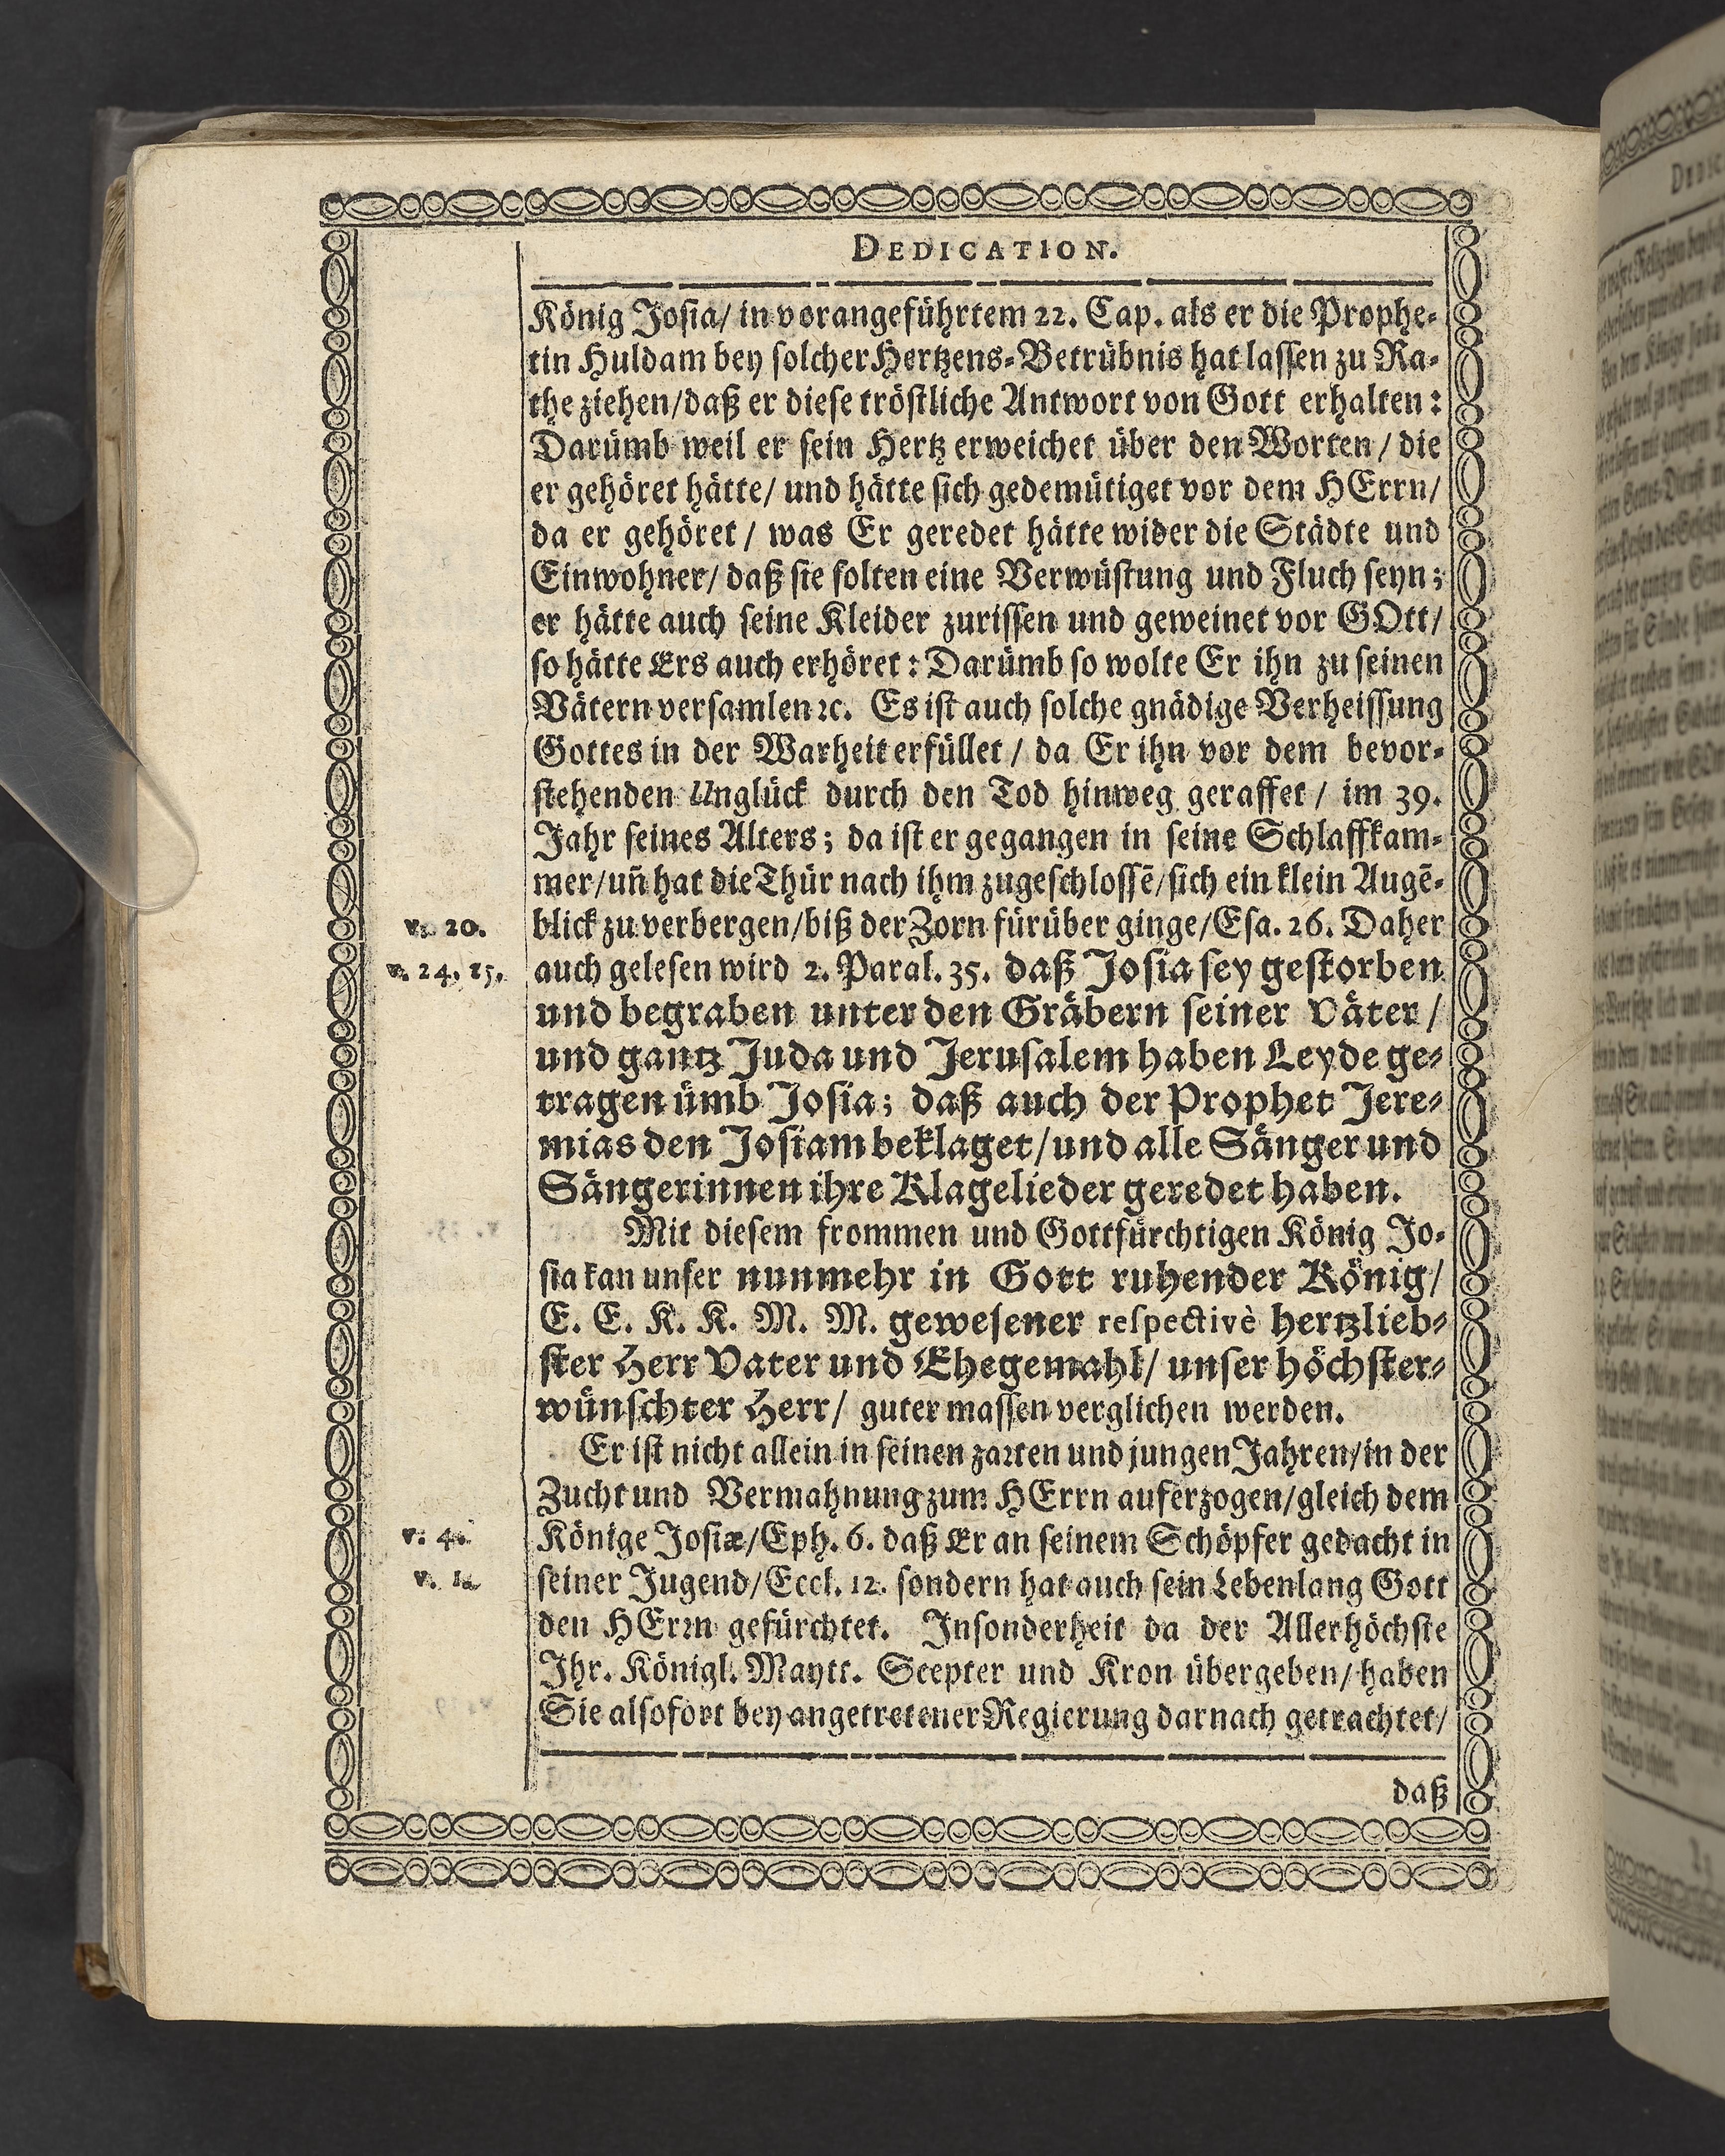 DEDICATION.
König Josia/ in vorangeführtem 22. Cap. als er die Prophe-
tin Huldam bey solcher Hertzens-Betrübnis hat lassen zu Ra-
the ziehen/daß er diese tröstliche Antwort von Gott erhalten:
Darümb weil er sein Hertz erweichet über den Worten/ die
er gehöret hätte/ und hätte sich gedemütiget vor dem HErrn/
da er gehöret/ was Er geredet hätte wider die Städte und
Einwohner/ daß sie solten eine Verwüstung und Fluch seyn;
er hätte auch seine Kleider zurissen und geweinet vor GOtt/
so hätte Ers auch erhöret: Darümb so wolte Er ihn zu seinen
Vätern versamlen ꝛc. Es ist auch solche gnädige Verheissung
Gottes in der Warheit erfüllet/ da Er ihn vor dem bevor-
stehenden Unglück durch den Tod hinweg geraffet/ im 39.
Jahr seines Alters; da ist er gegangen in seine Schlaffkam-
mer/uñ hat die Thür nach ihm zugeschlossē/sich ein klein Augē-
v. 20. blick zu verbergen/biß der Zorn fürüber ginge/Esa. 26. Daher
v. 24. 25. auch gelesen wird 2. Paral. 35. daß Josia sey gestorben
und begraben unter den Gräbern seiner Väter/
und gantz Juda und Jerusalem haben Leyde ge-
tragen ümb Josia; daß auch der Prophet Jere-
mias den Josiam beklaget/und alle Sänger und
Sängerinnen ihre Klagelieder geredet haben.
Mit diesem frommen und Gottfürchtigen König Jo-
sia kan unser nunmehr in Gott ruhender König/
E. E. K. K. M. M. gewesener respectivè hertzlieb-
ster Herr Vater und Ehegemahl/ unser höchster-
wünschter Herr/ guter massen verglichen werden.
Er ist nicht allein in seinen zarten und jungen Jahren/in der
Zucht und Vermahnung zum HErrn auferzogen/gleich dem
v. 4. Könige Josiæ/Eph. 6. daß Er an seinem Schöpfer gedacht in
v. 1. seiner Jugend/Eccl. 12. sondern hat auch sein Lebenlang Gott
den HErꝛn gefürchtet. Insonderheit da der Allerhöchste
Ihr. Königl. Maytt. Scepter und Kron übergeben/haben
Sie alsofort bey angetretener Regierung darnach getrachtet/
daß